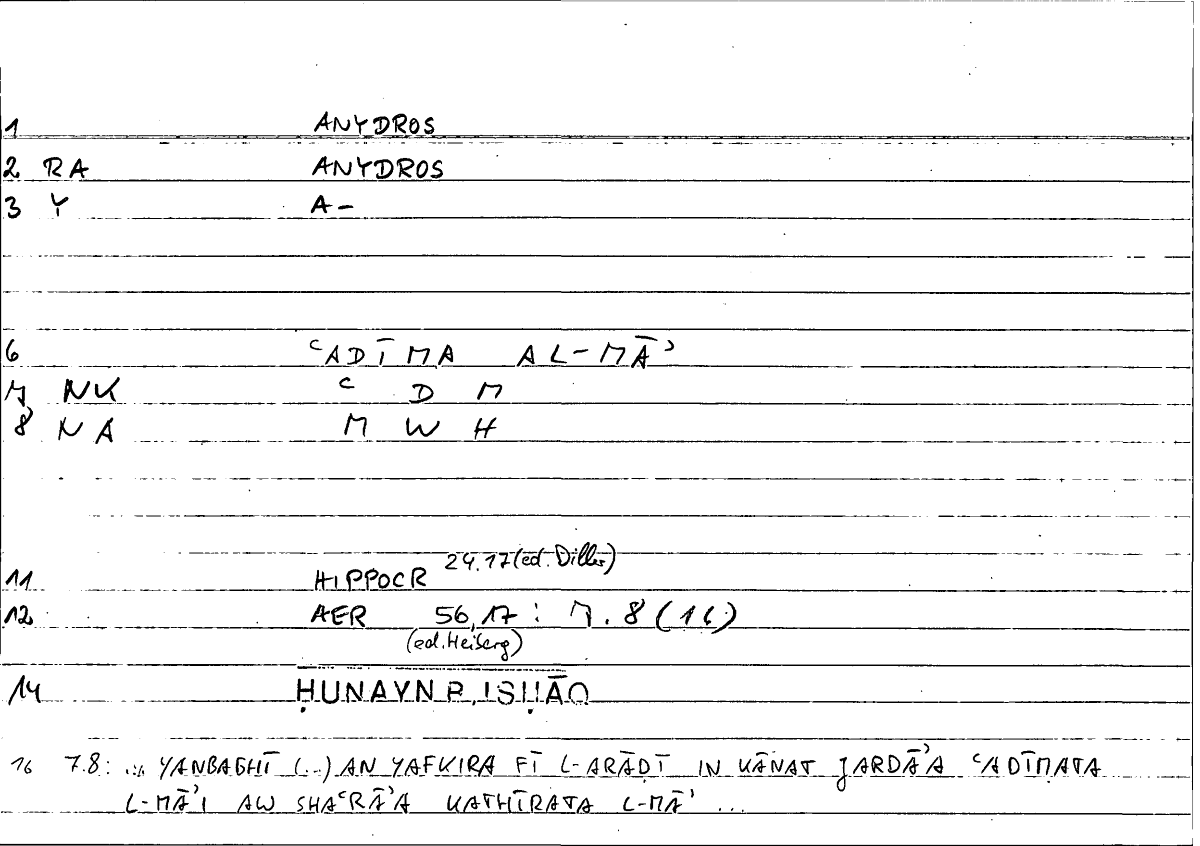 1 ANYDROS
2 RA ANYDROS
3 Y A-
6 ʿADĪMA AL-MĀʾ
7 NK ʿ D M
8 NA M W H
24.17 (ed. Diller)
11 HIPPOCR
12 AER 56,17 : 7.8 (16)
(ed. Heiberg)
14 ḤUNAYN B. ISḤĀQ
16 7.8: ... YANBAGHĪ (...) AN YAFKIRA FĪ L-ARĀḌĪ IN KĀNAT JARDĀʾA ʿADĪMATA
L-MĀʾI AW SHAʿRĀʾA KATHĪRATA L-MĀʾ ...